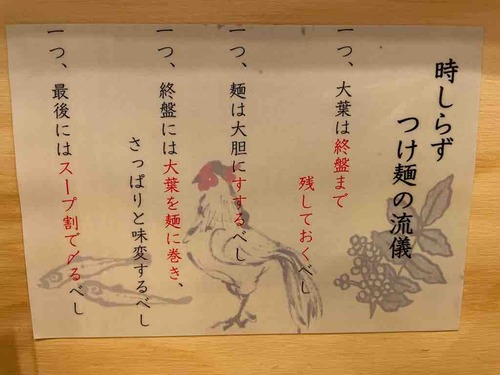 時しらず
つけ麺の流儀
一つ、大葉は終盤まで
残しておくべし
一つ、麺は大胆にすするべし
一つ、終盤には大葉を麺に巻き、
さっぱりと味変するべし
一つ、最後にはスープ割で〆るべし